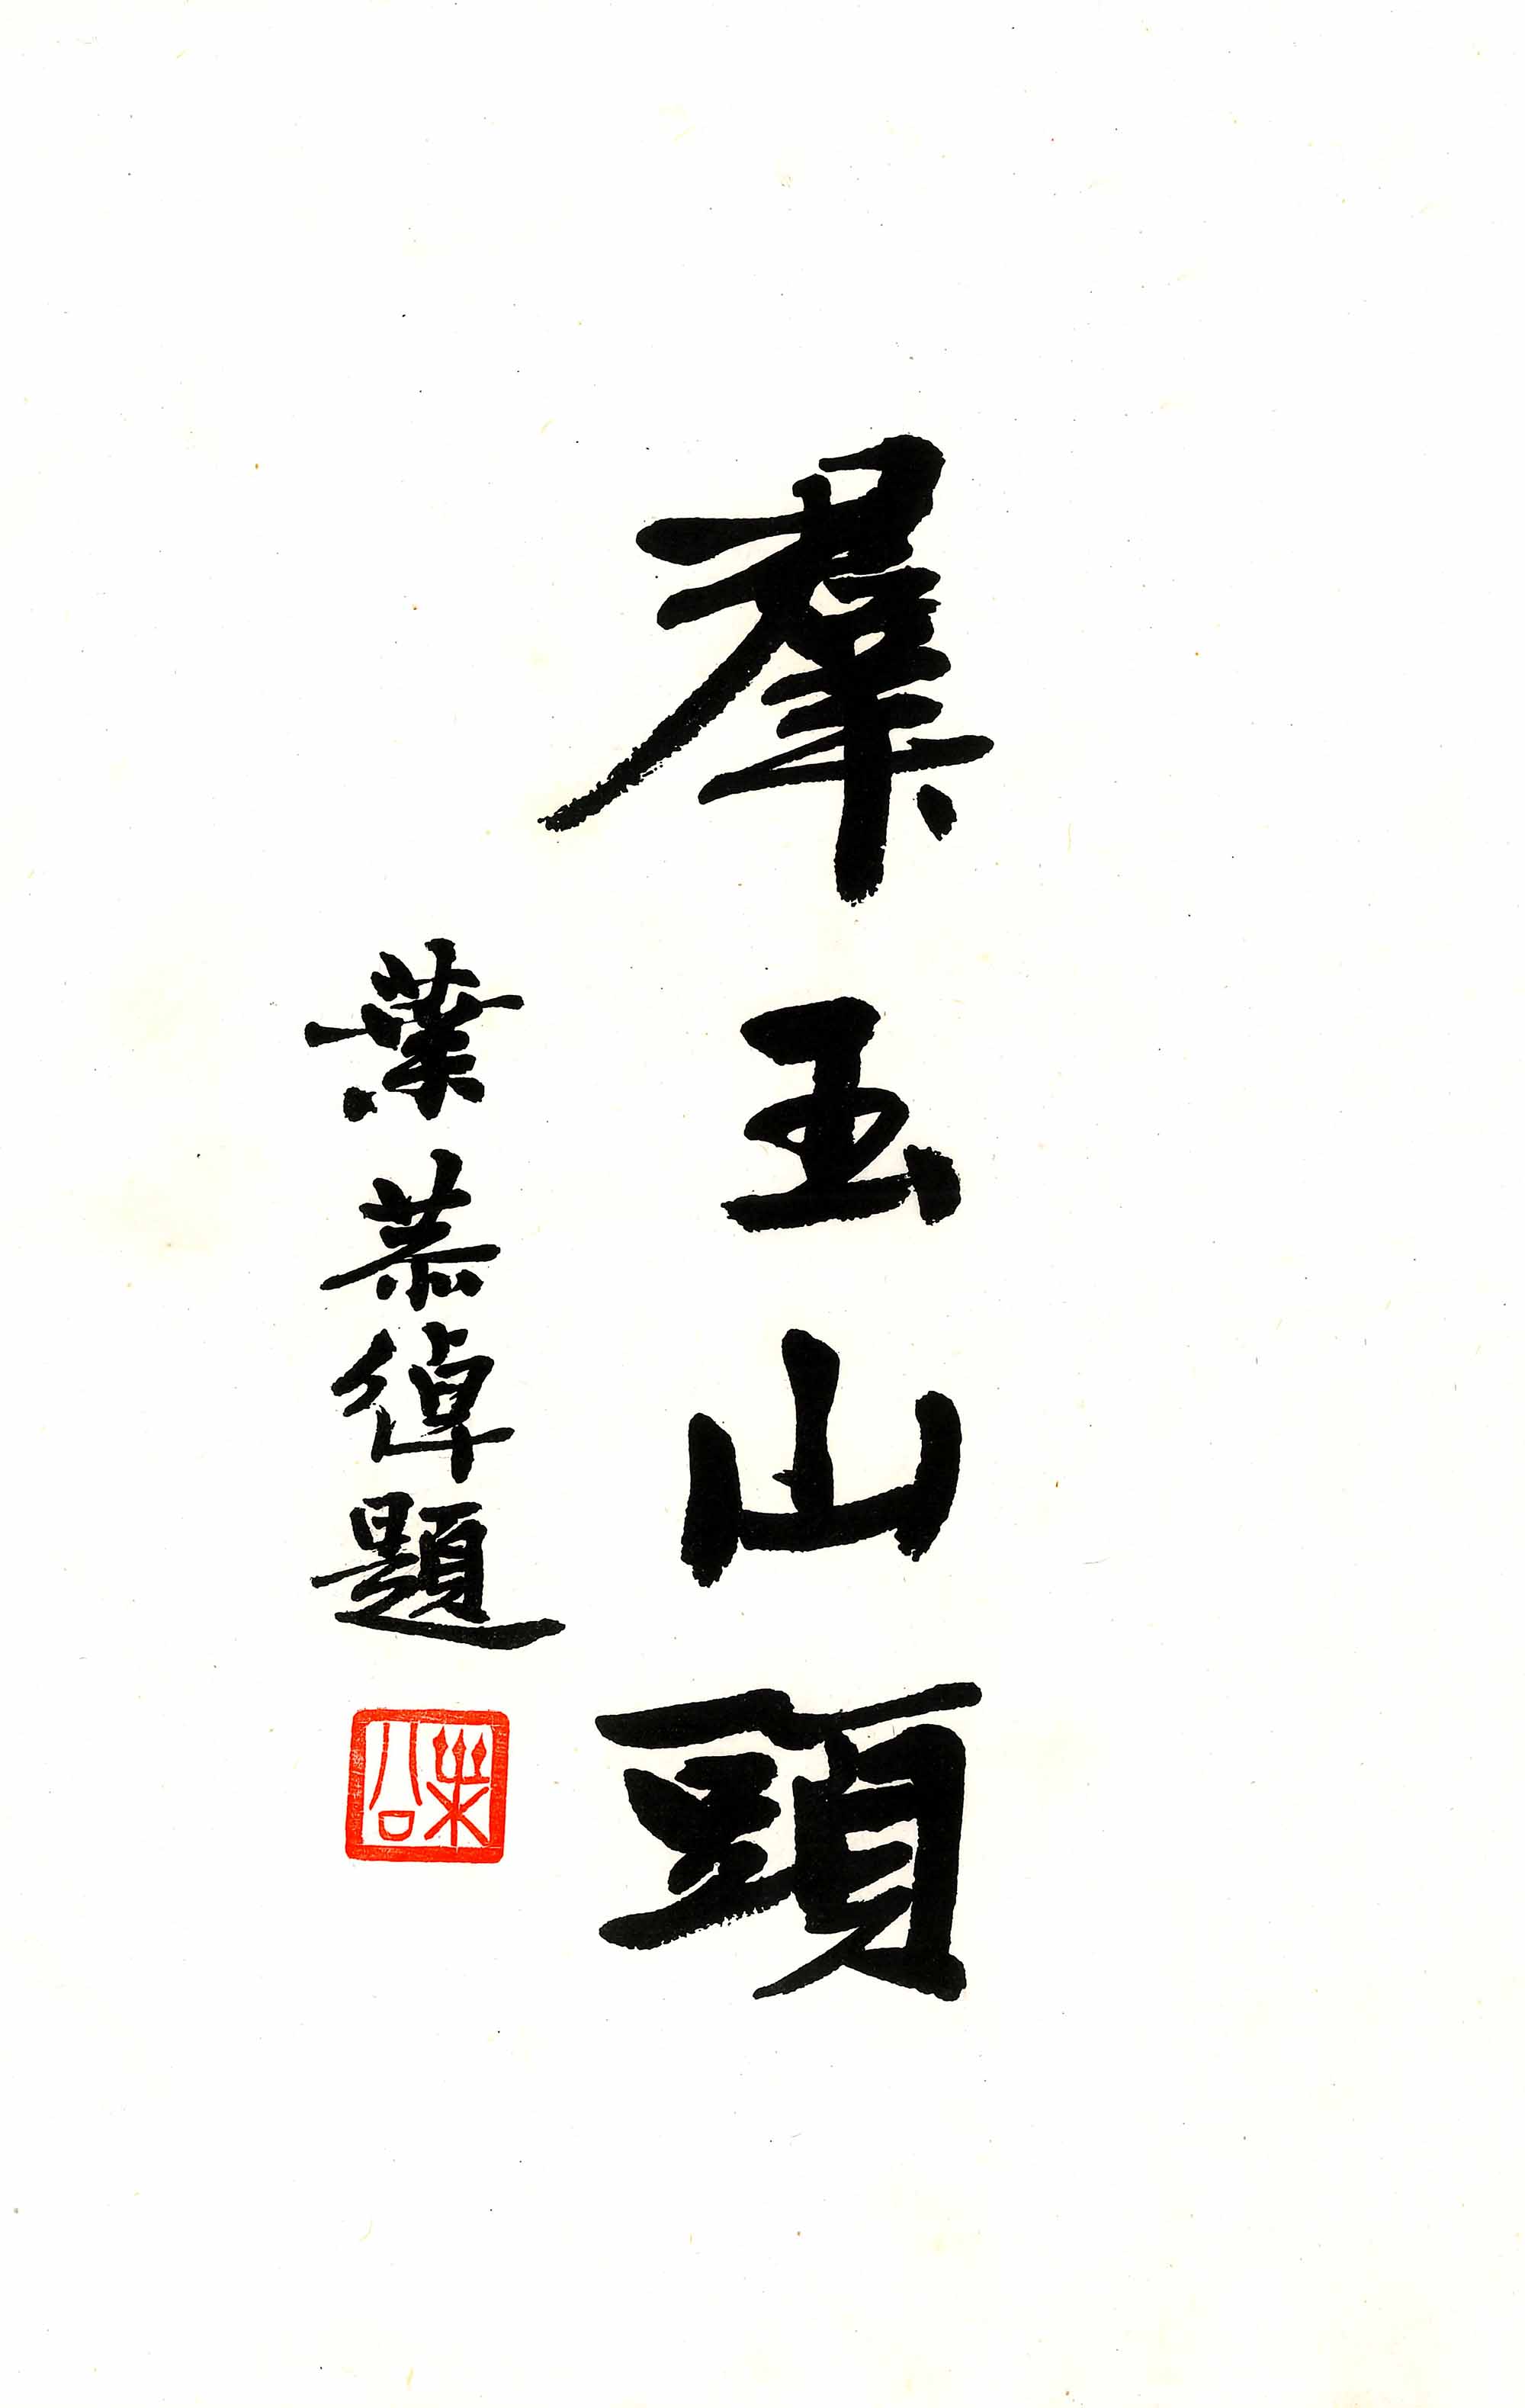 羣玉山頭
葉恭綽題
枼公